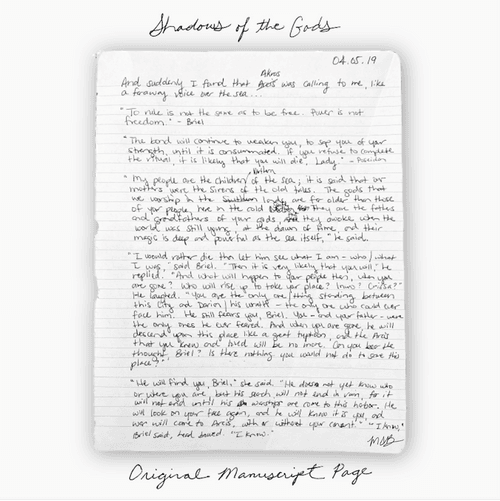 Shadows of the Gods
04.05.19
Akros
And suddenly I found that Areis was calling to me, like
a faraway voice over the sea...
"To rule is not the same as to be free. Power is not
freedom." - Briel
"The bond will continue to weaken you, to sap you of your
strength, until it is consummated. If you refuse to complete
the ritual, it is likely that you will die, Lady." -
"My people are the children of the sea; it is said that our
mothers were the Sirens of the old tales. The gods that
we worship in the Southern lands are far older than those
of your people here in the cold They are the fathers
and grandfathers of your gods, and they awoke when the
world was still young, at the dawn of time, and their
magic is deep and powerful as the sea itself," he said.
"I would rather die than let him see what I am - who/what
I was," said Briel. "Then it is very likely that you will," he
replied. "And what will happen to your people then, when you
are gone? Who will rise up to take your place?
He laughed. "You are the only one/thing standing between
this City and and his wrath - the only one who could ever
face him. He still fears you, Briel. You - and your father - were
the only ones he ever feared. And when you are gone, he will
descend upon this place like a great typhoon, and the Areis
that you knew and loved will be no more. Can you bear the
thought, Briel? Is there nothing you would not do to save this
place?"
"He will find you, Briel," she said. "He does not yet know who
or where you are, but his search will not end in vain, for it
will not end until his warships are come to this harbor. He
will look on your face again, and he will know it is you, and
war will come to Areis, with or without your consent." "I know,"
Briel said, head bowed. "I know."
Original Manuscript Page